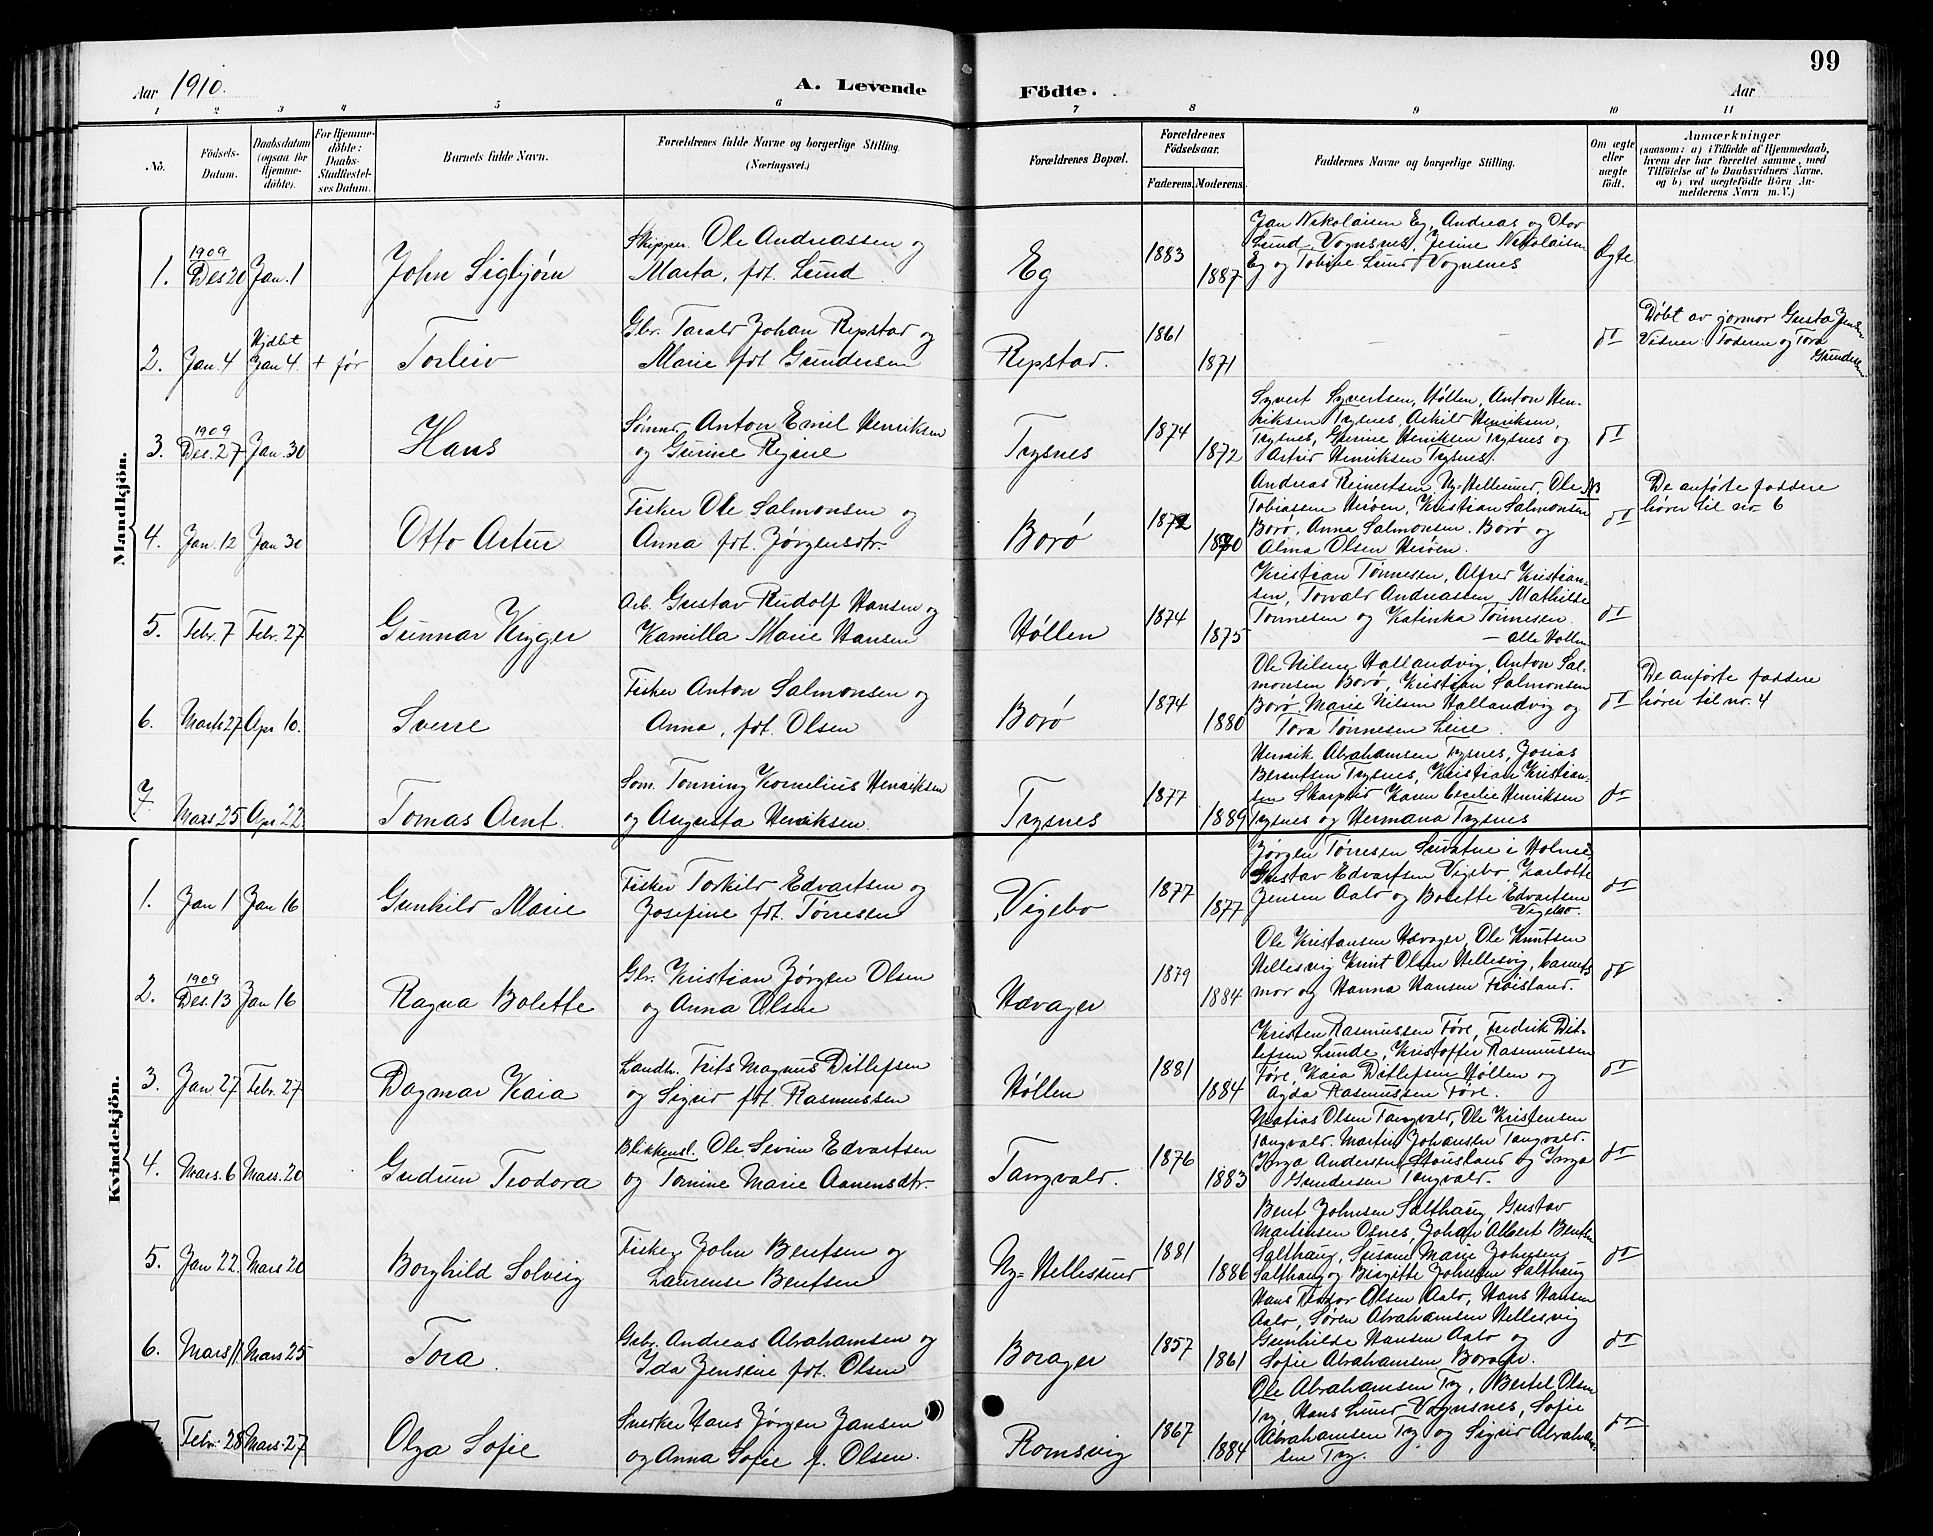 99
Aar 1910.
A. Levende
Födte.
Aar
1 2 3 4 5 6 7 8 9 10 11
No.
Födsels-Datum.
Daabsdatum (ogsaa for Hjemmedöbte).
For Hjemmedöbte: Daabs-Stadfæstelses Datum.
Barnets fulde Navn.
Forældrenes fulde Navne og borgerlige Stilling. (Næringsvei.)
Forældrenes Bopæl.
Forældrenes Födselsaar.
Faderens. Moderens.
Faddernes Navne og borgerlige Stilling.
Om ægte eller uægte födt.
Anmærkninger
(saasom: a) i Tilfælde af Hjemmedaab,
hvem der har forrettet samme, med
Tilföielse af to Daabsvidners Navne,
og b) ved uægtefödte Börn An-
melderens Navn m. V.)
Mandkjön.
1. 1909 Des 20 Jan. 1 John Sigbjørn
Skipper. Ole Andreassen og
Marta, fdt. Lund
Eg 1883 1887
Jan Nikolaisen Eg, Andreas og Olav
Lund, Vognsnes, Jesine Nikolaisen
Eg og Tobine Lund Vognsnes
Ægte
2. Jan. 4 Hjdbt Jan 4. + før Torleiv
Gbr. Tarald Johan Repstad og
Marie fdt Gundersen
Repstad. 1861 1871
dt
Døbt av jormor Gusta Jensen
Vidner: Faderen og Tora
Gundersen
3. 1909 Des. 27 Jan. 30 Hans
Sømnd. Anton Emil Henriksen
og Gurine Regine
Trysnes 1874 1872
Syvert Syvertsen, Høllen, Anton Hen-
riksen Trysnes, Askild Henriksen,
Trysnes, Gurine Henriksen Trysnes og
Astrid Henriksen Trysnes.
dt
4. Jan. 12 Jan 30 Otto Artur
Fisker Ole Salmonsen og
Anna fdt. Jørgensdtr.
Borø 1872 1870
Andreas Reinertsen, Ny-Hellesund, Ole
Tobiassen Herøen, Kristian Salmonsen
Borø, Anna Salmonsen. Borø og
Alma Olsen Herøen.
NB
dt
De anførte faddere
hører til nr. 6
5. Febr. 7 Febr. 27 Gunnar Kryger
Arb. Gustav Rudolf Hansen og
Kamilla Marie Hansen
Høllen 1874 1875
Kristian Tønnesen, Alfred Kristian-
sen, Torvald Andreassen, Mathilde
Tønnesen og Katinka Tønnesen.
— alle Høllen
dt
6. Mars 27 Apr 10. Sverre
Fisker Anton Salmonsen og
Anna, fdt. Olsen
Borø 1874 1880
Ole Nilsen Hallandvig, Anton Sal-
monsen Borø, Kristian Salmonsen
Borø. Marie Nilsen Hallandvig og
Tora Tønnesen Leire.
dt
De anførte faddere
hører til nr. 4
7. Mars 25 Apr. 22 Tomas Arnt.
Søm. Tønning Kornelius Henriksen
og Augusta Henriksen.
Trysnes 1877 1889
Henrik Abrahamsen Trysnes, Josias
Berentsen Trysnes, Kristian Kristian-
sen Skarpeid Karen Cecilie Henriksen
Trysnes og Hermana Trysnes
dt
Kvindekjön.
1. Jan 1 Jan 16 Gunhild Marie
Fisker Torkild Edvartsen og
Josefine fdt. Tørresen
Vigebo 1877 1877
Jørgen Tørresen i Holme,
Gustav Edvartsen Vigebo, Karlotte
Jensen Aalo og Bolette Edvartsen
Vigebo.
dt
2. 1909 Des. 13 Jan 16 Ragna Bolette
Gbr. Kristian Jørgen Olsen
og Anna Olsen
Hævager 1879 1884
Ole Kristansen Hævager, Ole Knutsen
Hellesvig Knut Olsen Hellesvig, barnets
mor og Hanna Hansen Frøisland.
dt
3. Jan 27 Febr. 27 Dagmar Kaia
Landh. Frits Magnus Ditlefsen
og Sigrid fdt. Rasmussen
Høllen 1881 1884
Kristen Rasmussen Føre, Fredrik Dit-
lefsen Lunde, Kristoffer Rasmussen
Føre, Kaia Ditlefsen Høllen og
Agda Rasmussen Føre.
dt
4. Mars. 6 Mars. 20 Gudrun Teodora
Blikkensl. Ole Severin Edvartsen
og Tomine Marie Aanensdtr.
Tangvald. 1876 1883
Matias Olsen Tangvald, Ole Kristensen
Tangvald. Martin Johansen Tangvald.
Inga Andersen Stousland og Inga
Gundersen Tangvald.
dt
5. Jan 22. Mars 20 Borghild Solveig
Fisker John Bentsen og
Laurense Bentsen
Ny-Hellesund 1881 1886
Bent Johnsen Salthaug, Gustav
Martinsen Osnes, Johan Albert Bentsen
Salthaug, Susane Marie Johnsen
Salthaug og Birgitte Johnsen Salthaug
dt
6. Mars 11 Mars 25 Tora.
Gbr. Andreas Abrahamsen og
Ida Jensine fdt. Olsen
Borager 1857 1861
Hans Teodor Olsen Aalo, Hans Hansen
Aalo, Søren Abrahamsen Hellesvig
Gunhilde Hansen Aalo og
Sofie Abrahamsen Borager.
dt
7. Febr. 28 Mars. 27 Olga Sofie
Snekker Hans Jørgen Jansen
og Anna Sofie f. Olsen.
Romsvig 1867 1884
Ole Abrahamsen Try, Bertel Olsen
Try, Hans Lund Vognsnes, Sofie
Abrahamsen Try og Sigrid Abraham-
sen Try.
dt